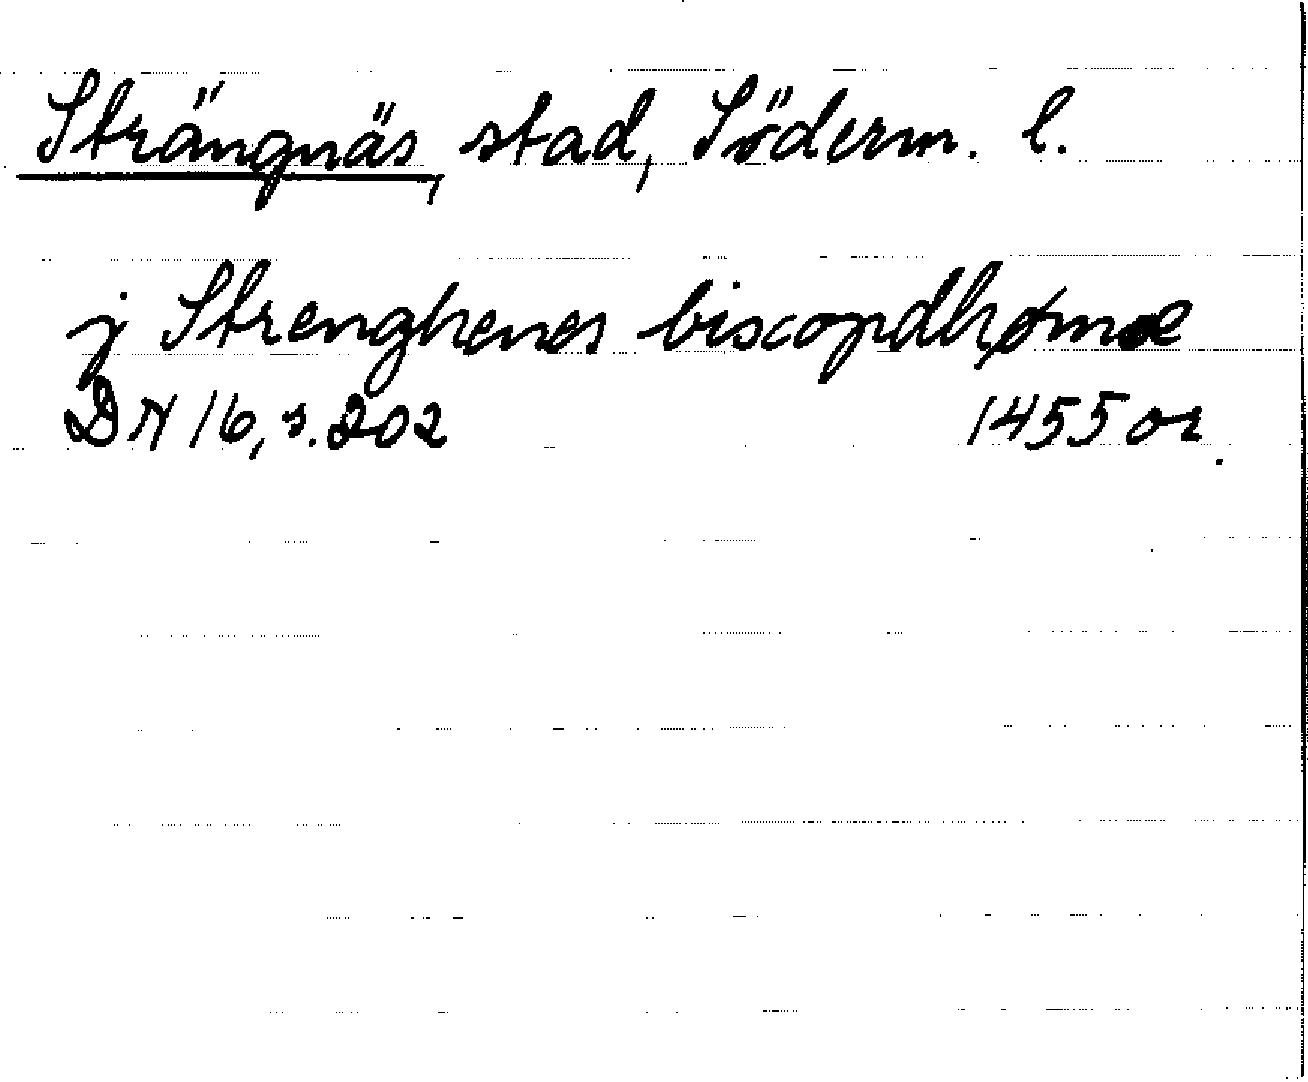 Strängnäs, stad, Söderm. l.
j Strenghenes biscopdhømæ
DN 16, s. 202 1455 or.